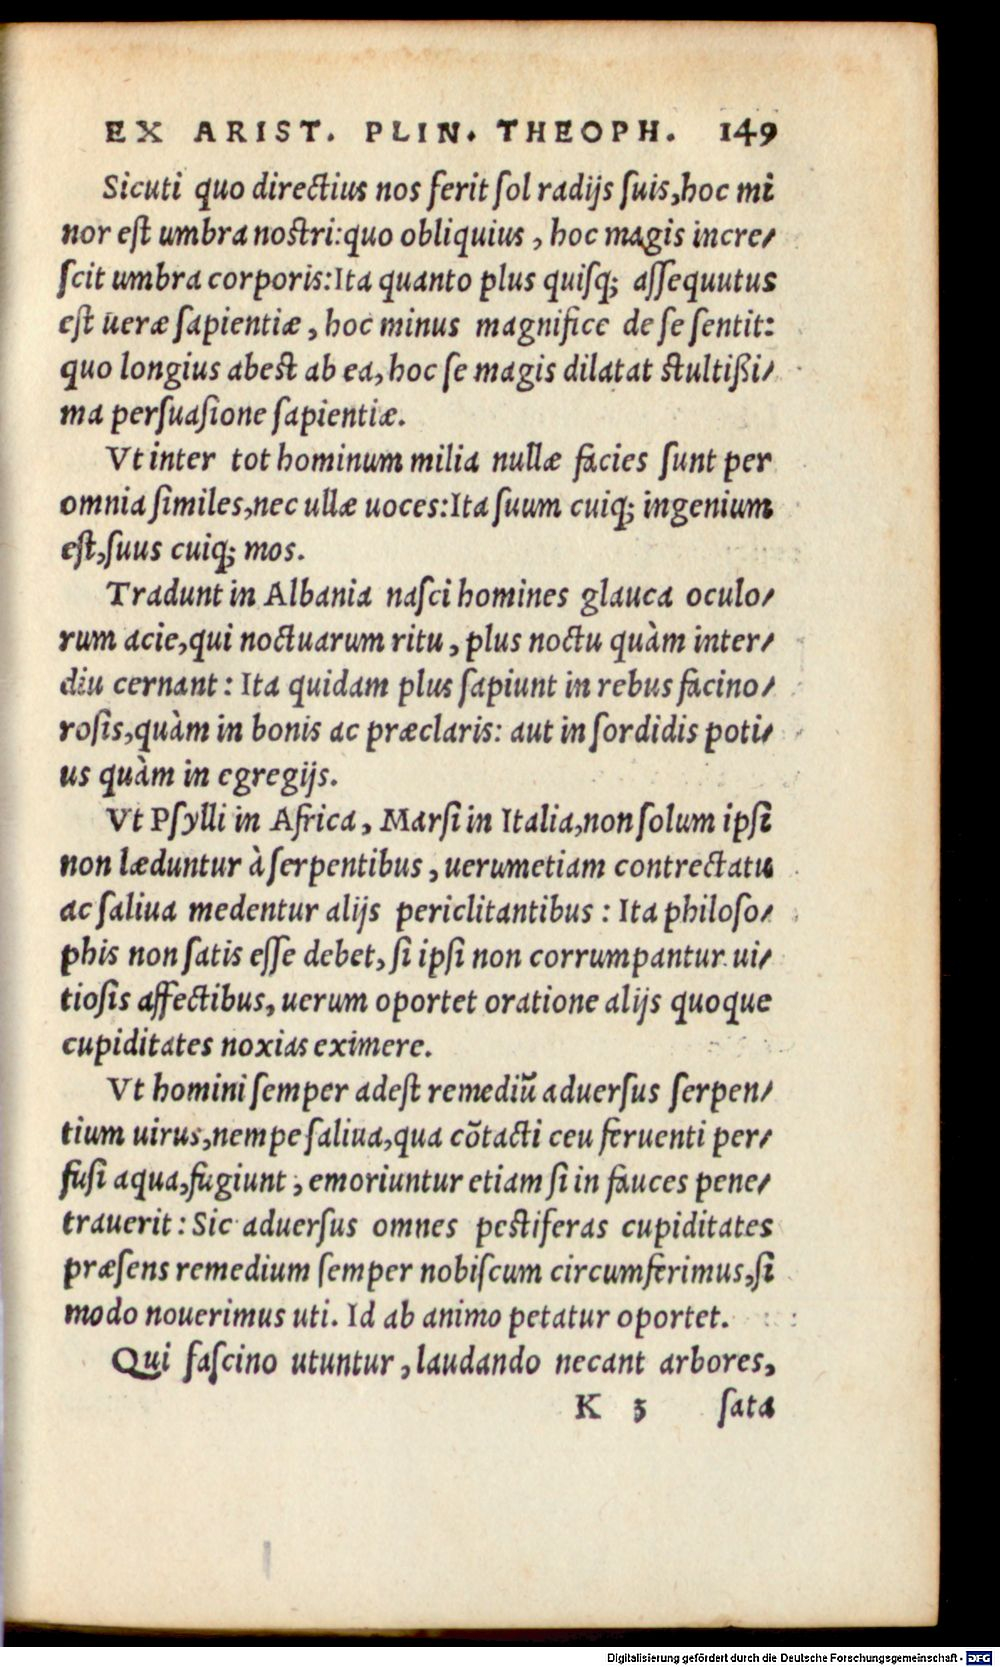 EX ARIST. PLIN. THEOPH. 149
Sicuti quo directius nos ferit ſol radijs ſuis,hoc mi
nor eſt umbra noſtri:quo obliquius , hoc magis incre/
ſcit umbra corporis:Ita quanto plus quiſq; aſſequutus
eſt ueræ ſapientiæ , hoc minus magnifice de ſe ſentit:
quo longius abeſt ab ea, hoc ſe magis dilatat ſtultißi/
ma perſuaſione ſapientiæ.
Vt inter tot hominum milia nullæ facies ſunt per
omnia ſimiles,nec ullæ uoces:Ita ſuum cuiq; ingenium
eſt,ſuus cuiq; mos.
Tradunt in Albania naſci homines glauca oculo/
rum acie,qui noctuarum ritu , plus noctu quàm inter/
diu cernant : Ita quidam plus ſapiunt in rebus facino/
roſis,quàm in bonis ac præclaris: aut in ſordidis poti/
us quàm in egregijs.
Vt Pſylli in Africa , Marſi in Italia,non ſolum ipſi
non læduntur à ſerpentibus , uerumetiam contrectatu
ac ſaliua medentur alijs periclitantibus : Ita philoſo/
phis non ſatis eſſe debet, ſi ipſi non corrumpantur ui/
tioſis affectibus, uerum oportet oratione alijs quoque
cupiditates noxias eximere.
Vt homini ſemper adeſt remediū aduerſus ſerpen/
tium uirus,nempe ſaliua,qua cōtacti ceu feruenti per/
fuſi aqua,fugiunt , emoriuntur etiam ſi in fauces pene/
trauerit : Sic aduerſus omnes peſtiferas cupiditates
præſens remedium ſemper nobiſcum circumferimus,ſi
modo nouerimus uti. Id ab animo petatur oportet.
Qui faſcino utuntur , laudando necant arbores,
K 3 ſata
Digitalisierung gefördert durch die Deutsche Forschungsgemeinschaft - DFG